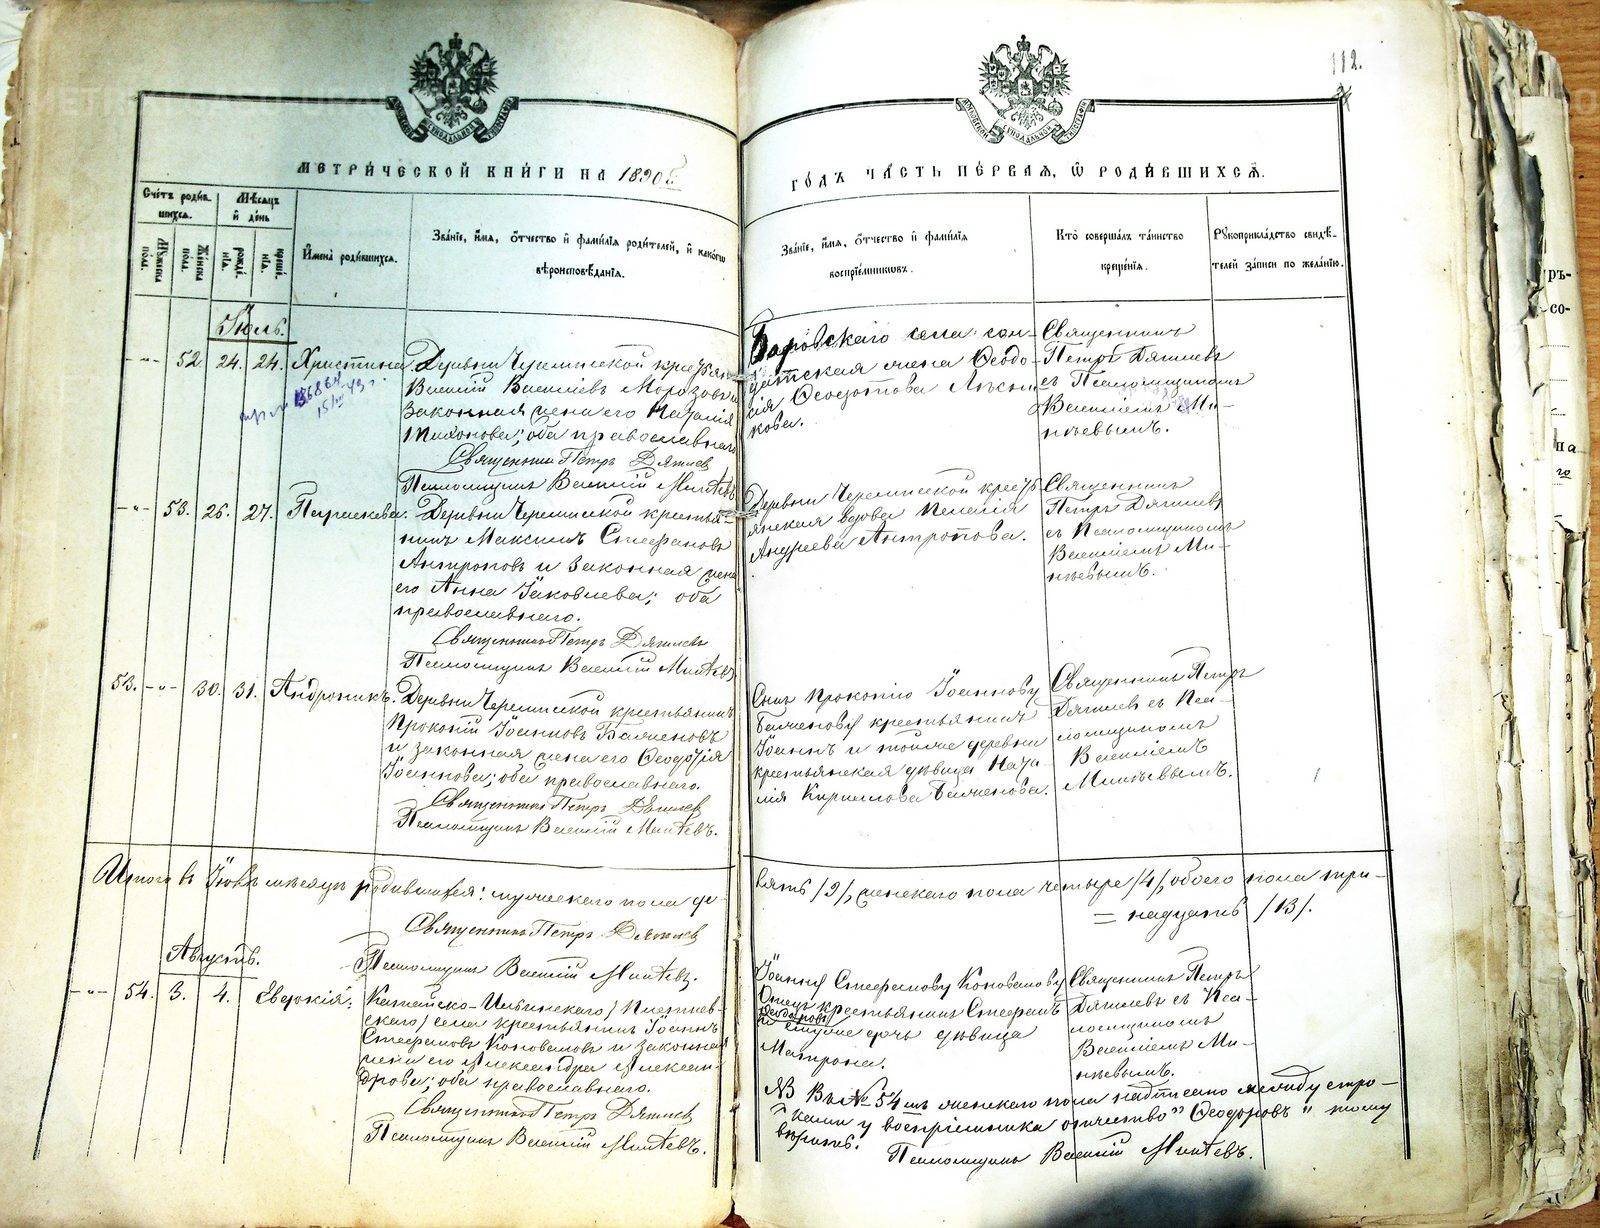 112.
МЕТРИЧЕСКОЙ КНИГИ НА 1890й
ГОДЪ ЧАСТЬ ПЕРВАЯ, Ѿ РОДИВШИХСЯ.
Счетъ родив-
шихся.
Мѣсяцъ
и день
Мужеска
пола.
Женска
пола.
рожде-
нія.
креще-
нія.
Имена родившихся.
Званіе, имя, отчество и фамилія родителей, и какого
вѣроисповѣданія.
Званіе, имя, отчество и фамилія
воспріемниковъ.
Кто совершалъ таинство
крещенія.
Рукоприкладство свидѣ-
телей записи по желанію.
Іюль.
-"- 52. 24. 24. Христина.
Деревни Черемисской крестьян.
Василій Васильевъ Морозовъ и
законная жена его Наталія
Тихонова; оба православнаго.
Священникъ Петръ Дягилевъ
Псаломщикъ Василій Минѣевъ
Боровскаго села сол-
датская жена Ѳеодо-
сія Ѳеодотова
кова.
Священникъ
Петръ Дягилевъ
съ Псаломщикомъ
Василіемъ Ми-
нѣевымъ.
-"- 53. 26. 27. Параскева.
Деревни Черемисской крестья-
нинъ Максимъ Стефановъ
Антроповъ и законная жена
его Анна Іаковлева; оба
православнаго.
Священникъ Петръ Дягилевъ
Псаломщикъ Василій Минѣевъ
Деревни Черемисской кресть-
янская вдова Пелагія
Андреева Антропова.
Священникъ
Петръ Дягилевъ
съ Псаломщикомъ
Василіемъ Ми-
нѣевымъ.
53. -"- 30. 31. Андроникъ.
Деревни Черемисской крестьянинъ
Прокопій Іоанновъ
и законная жена его Ѳеодосія
Іоаннова; оба православнаго.
Священникъ Петръ Дягилевъ
Псаломщикъ Василій Минѣевъ.
Сынъ Прокопію Іоаннову
крестьянинъ
Іоаннъ и тойже деревни
крестьянская дѣвица Ната-
лія Кириллова
Священникъ Петръ
Дягилевъ съ Пса-
ломщикомъ
Василіемъ
Минѣевымъ.
Итого въ Іюлѣ мѣсяцѣ родившихся: мужескаго пола де-
вять /9/, женскаго пола четыре /4/, обоего пола три-
= надцать /13/.
Священникъ Петръ Дягилевъ
Псаломщикъ Василій Минѣевъ.
Августъ.
-"- 54. 3. 4. Евдокія.
Катайско-Ильинскаго
скаго/ села крестьянинъ Іоаннъ
Стефановъ Коноваловъ и законная
жена его Александра Алексан-
дрова; оба православнаго.
Священникъ Петръ Дягилевъ
Псаломщикъ Василій Минѣевъ.
Іоанну Стефанову Коновалову
Отецъ крестьянинъ Стефанъ
Ѳеодоровъ
и дочь дѣвица
Матрона.
Священникъ Петръ
Дягилевъ съ Пса-
ломщикомъ
Василіемъ Ми-
нѣевымъ.
NB Въ № 54мъ женскаго пола надписано между стро-
ками у воспріемника отчество "Ѳеодоровъ" тому
вѣрить.
Псаломщикъ Василій Минѣевъ.